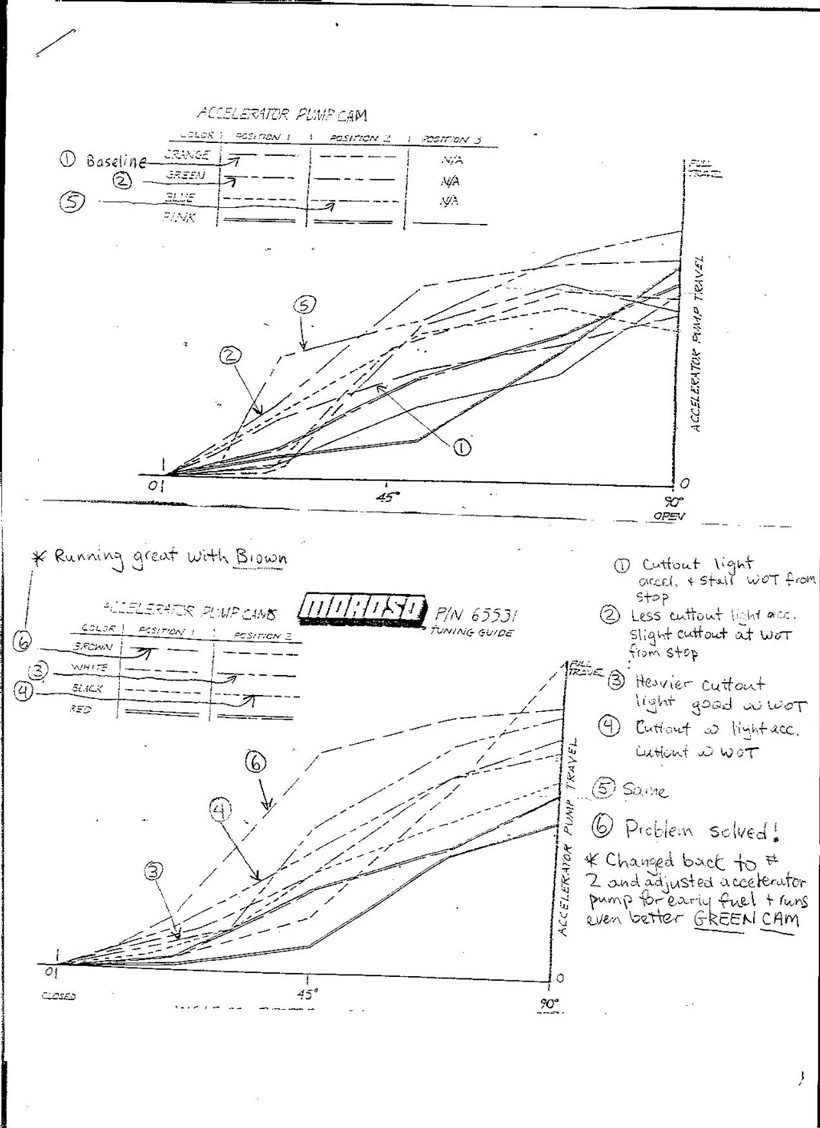 ACCELERATOR PUMP CAM
COLOR POSITION 1 POSITION 2 POSITION 3
① Baseline ORANGE N/A
② GREEN N/A
⑤ BLUE N/A
PINK
FULL TRAVEL
ACCELERATOR PUMP TRAVEL
⑤
②
①
0
0 45° 90°
OPEN
* Running great with Brown
ACCELERATOR PUMP CAMS
COLOR POSITION 1 POSITION 2
⑥ BROWN
③ WHITE
④ BLACK
RED
MOROSO P/N 65531
TUNING GUIDE
FULL TRAVEL
ACCELERATOR PUMP TRAVEL
⑥
④
③
0
0 45° 90°
CLOSED
① Cuttout light
accel. + stall WOT from
stop
② Less cuttout light acc.
slight cuttout at WOT
from stop
③ Heavier cuttout
light good w WOT
④ Cuttout w light acc.
cuttout w WOT
⑤ Same
⑥ Problem solved!
* Changed back to #
2 and adjusted accelerator
pump for early fuel + runs
even better GREEN CAM